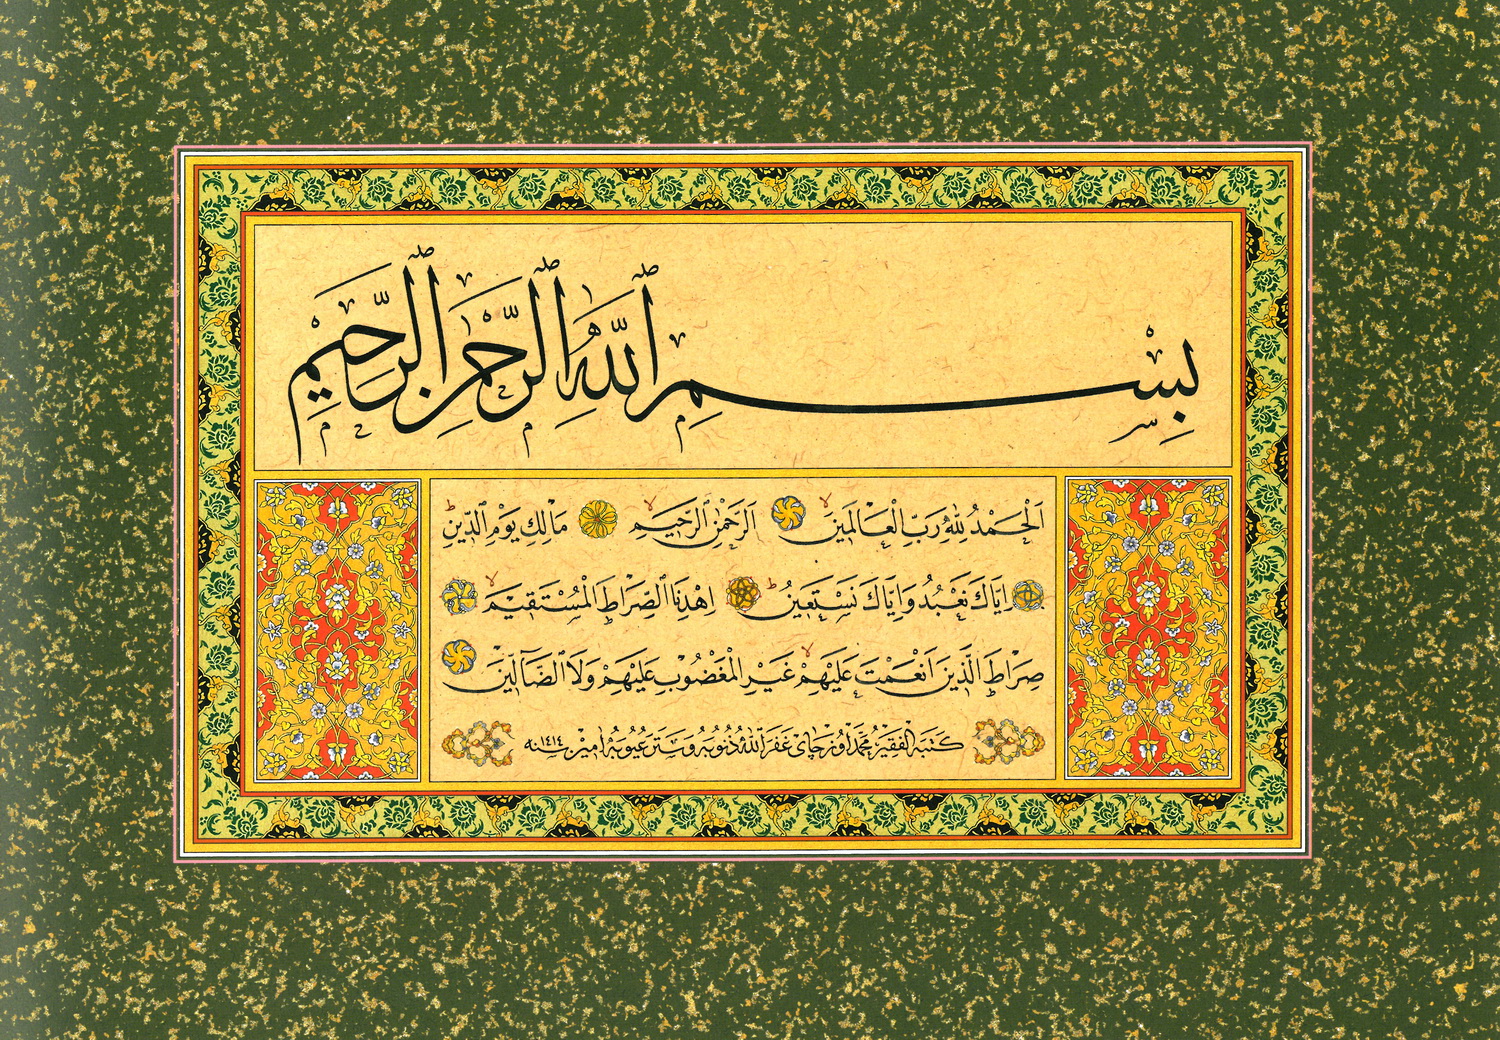 بِسْمِ ٱللّٰهِ ٱلرَّحْمٰنِ ٱلرَّحِيمِ
اَلْحَمْدُ لِلّٰهِ رَبِّ الْعَالَمِينَ ۙ اَلرَّحْمٰنِ ٱلرَّحِيمِ ۙ مَالِكِ يَوْمِ ٱلدِّينِ ۜ
اِيَّاكَ نَعْبُدُ وَاِيَّاكَ نَسْتَعِينُ ۜ اِهْدِنَا ٱلصِّرَاطَ الْمُسْتَقِيمَ ۙ
صِرَاطَ ٱلَّذِينَ اَنْعَمْتَ عَلَيْهِمْ ۙ غَيْرِ الْمَغْضُوبِ عَلَيْهِمْ وَلَا ٱلضَّآلِّينَ
كتبه الفقير محمد اوزچاى غفر الله ذنوبه وستر عيوبه امين ١٤١٤ـه